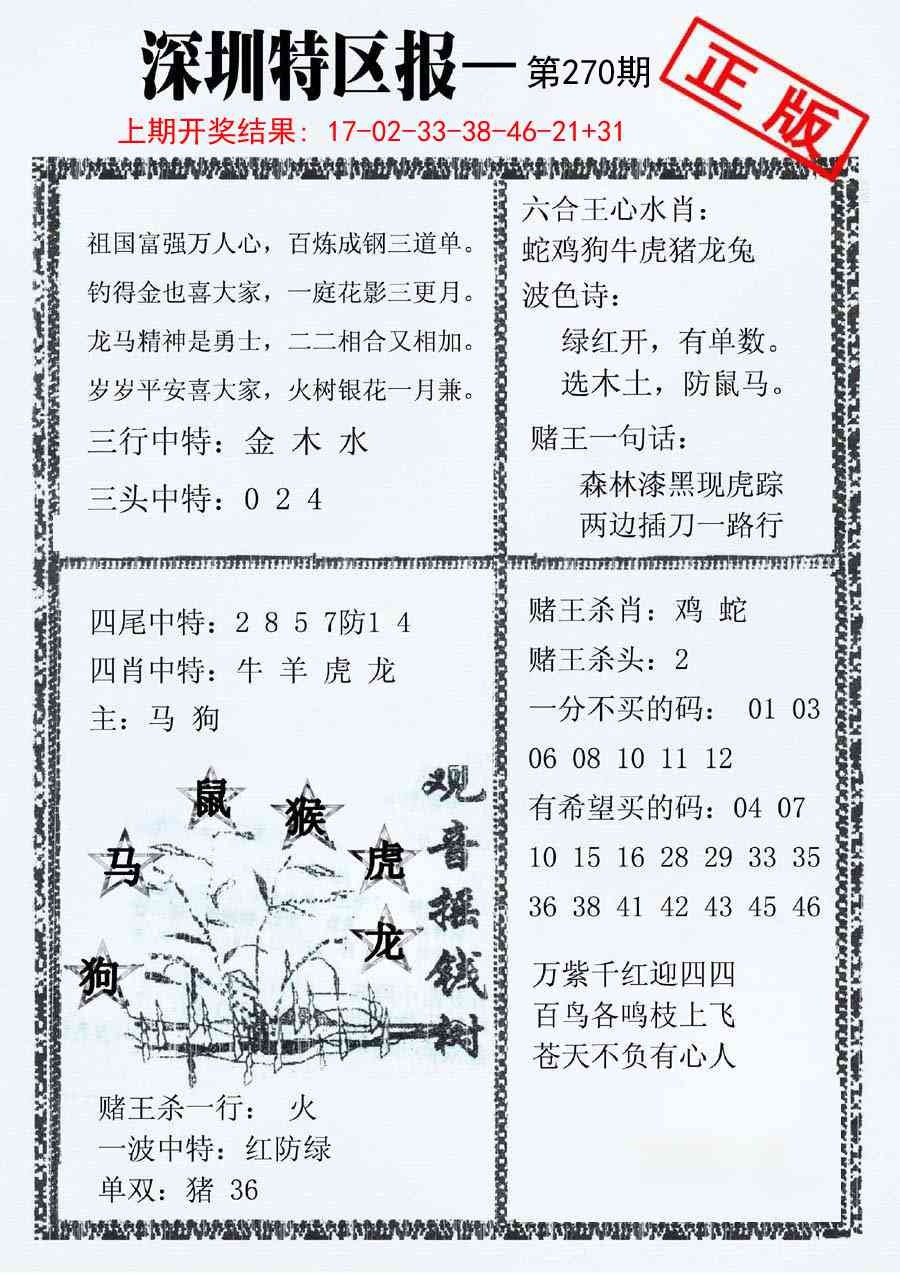 深圳特区报一 第270期
正版
上期开奖结果: 17-02-33-38-46-21+31
祖国富强万人心，百炼成钢三道单。
钓得金也喜大家，一庭花影三更月。
龙马精神是勇士，二二相合又相加。
岁岁平安喜大家，火树银花一月兼。
三行中特：金 木 水
三头中特：0 2 4
六合王心水肖：
蛇鸡狗牛虎猪龙兔
波色诗：
绿红开，有单数。
选木土，防鼠马。
赌王一句话：
森林漆黑现虎踪
两边插刀一路行
四尾中特：2 8 5 7防1 4
四肖中特：牛 羊 虎 龙
主：马 狗
鼠
猴
马
虎
龙
狗
观音摇钱树
赌王杀一行： 火
一波中特：红防绿
单双：猪 36
赌王杀肖：鸡 蛇
赌王杀头：2
一分不买的码： 01 03
06 08 10 11 12
有希望买的码：04 07
10 15 16 28 29 33 35
36 38 41 42 43 45 46
万紫千红迎四四
百鸟各鸣枝上飞
苍天不负有心人